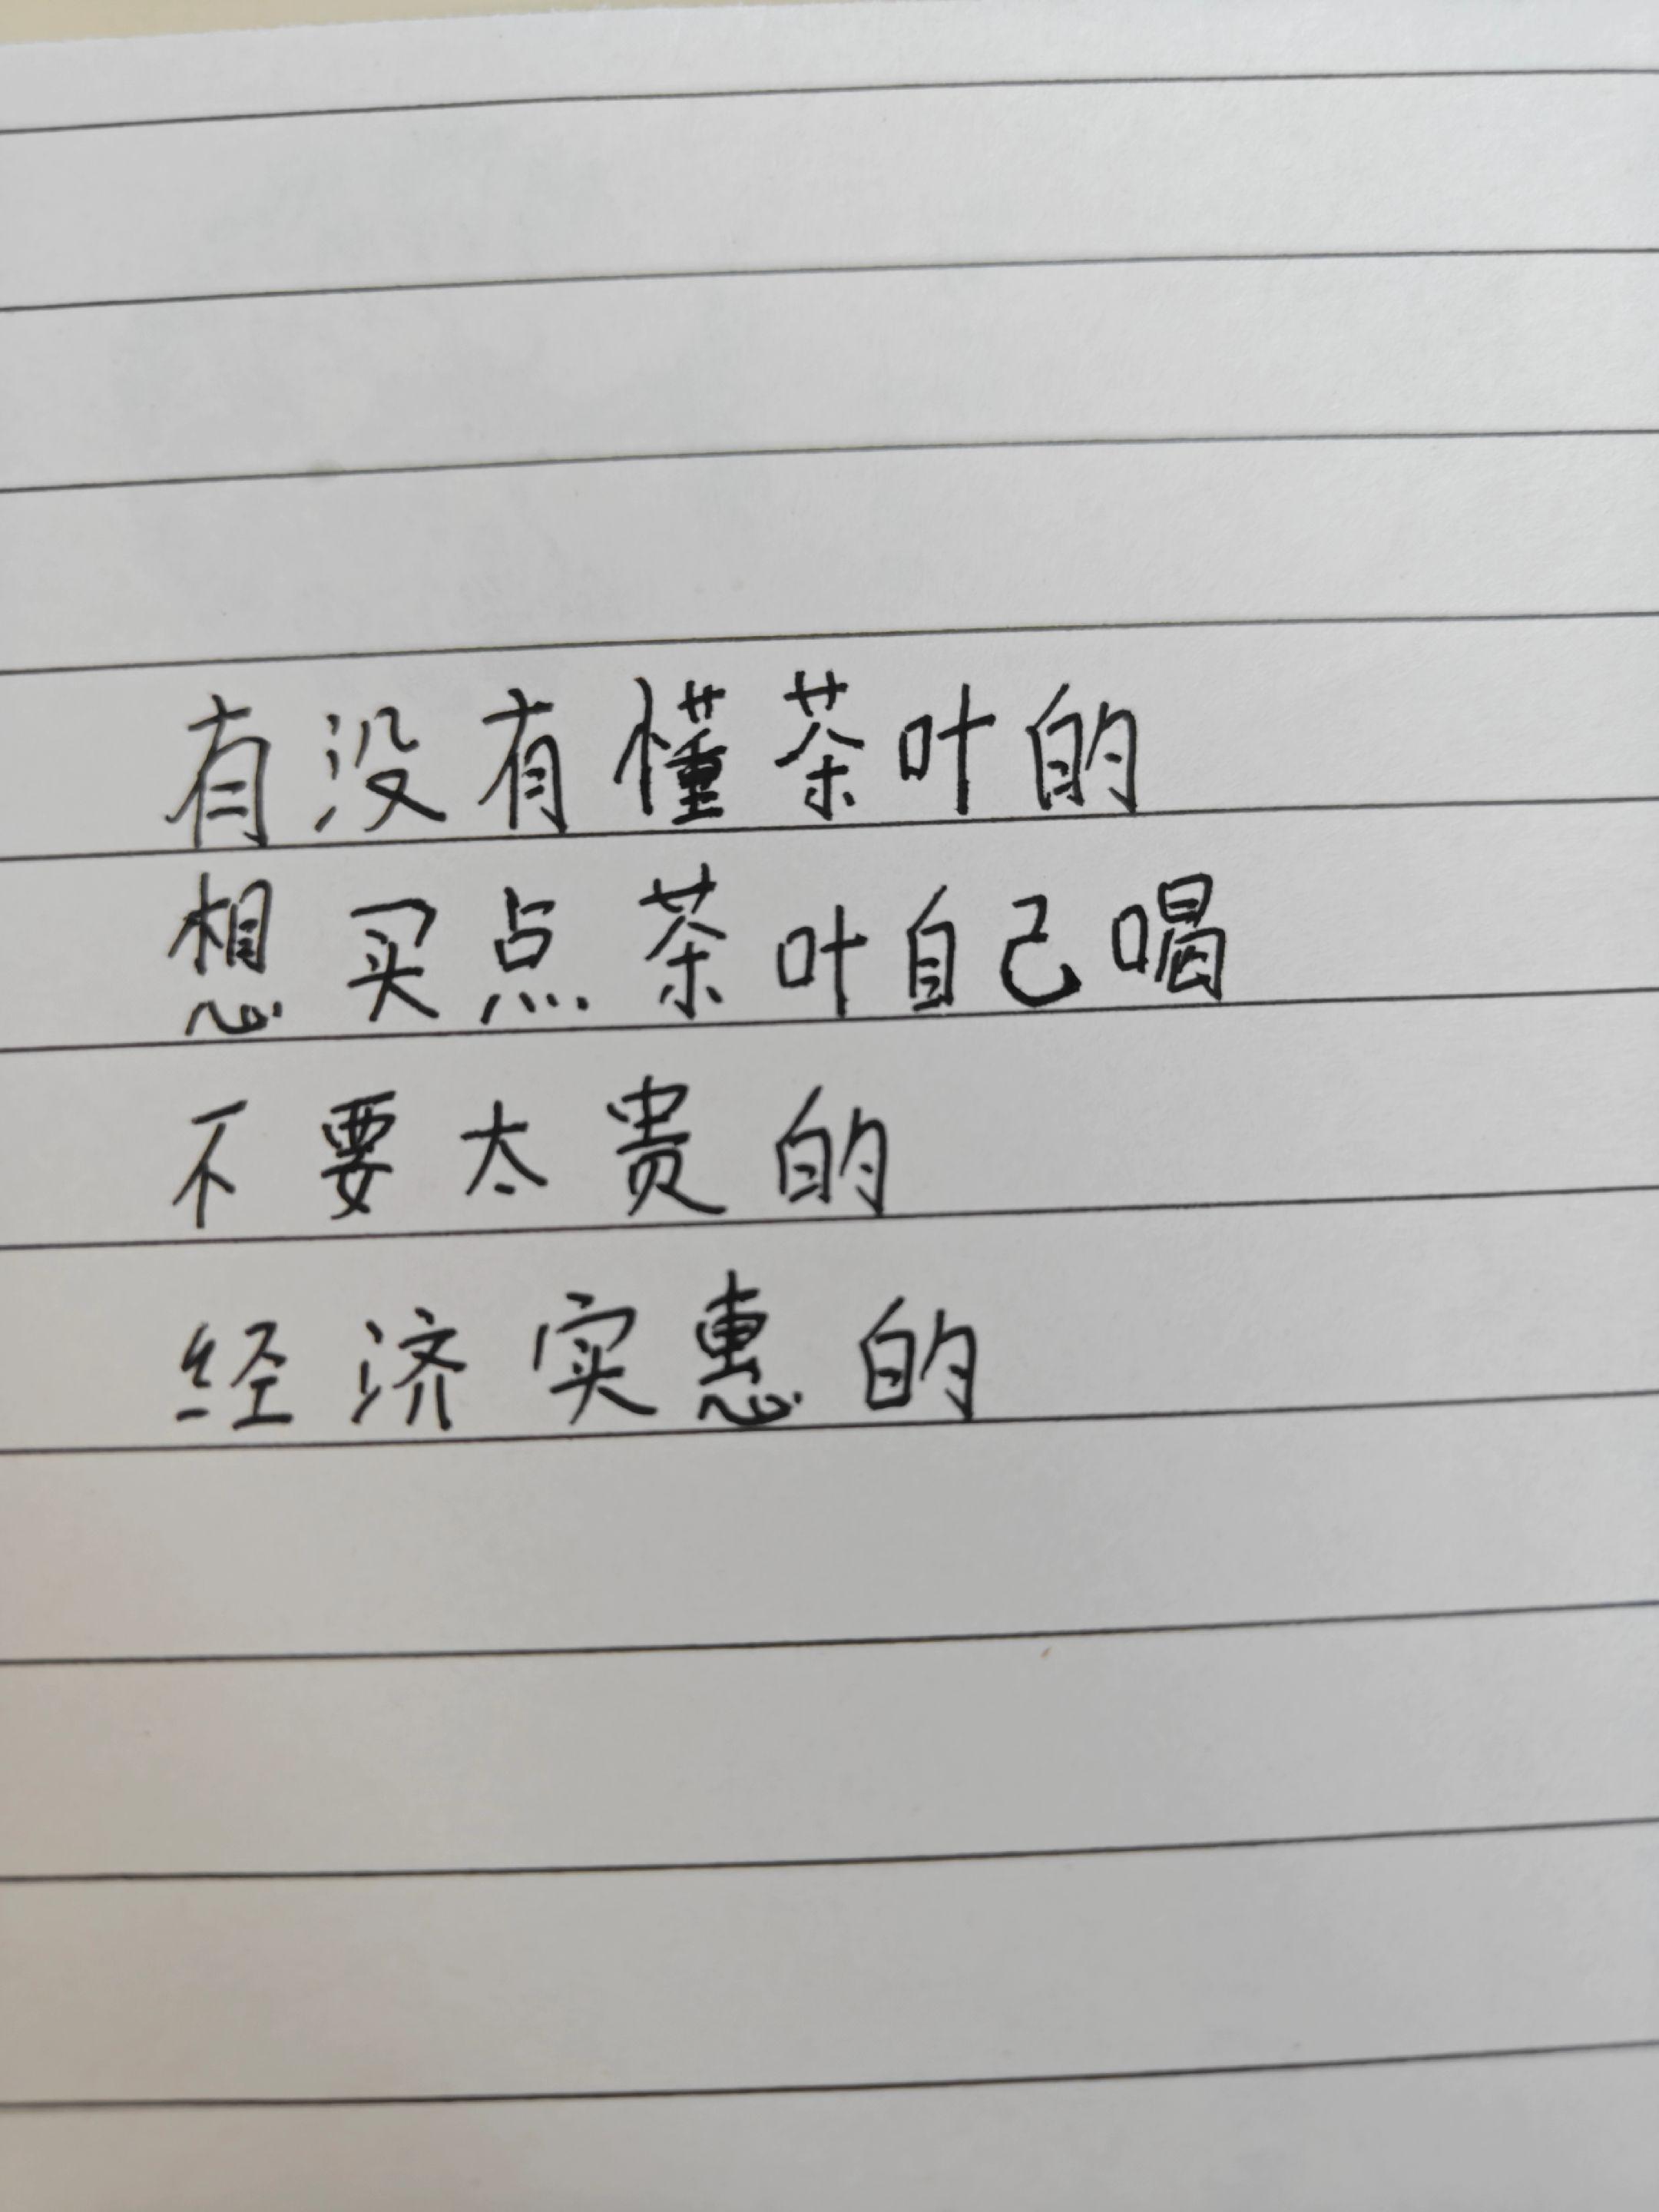 有没有懂茶叶的
想买点茶叶自己喝
不要太贵的
经济实惠的